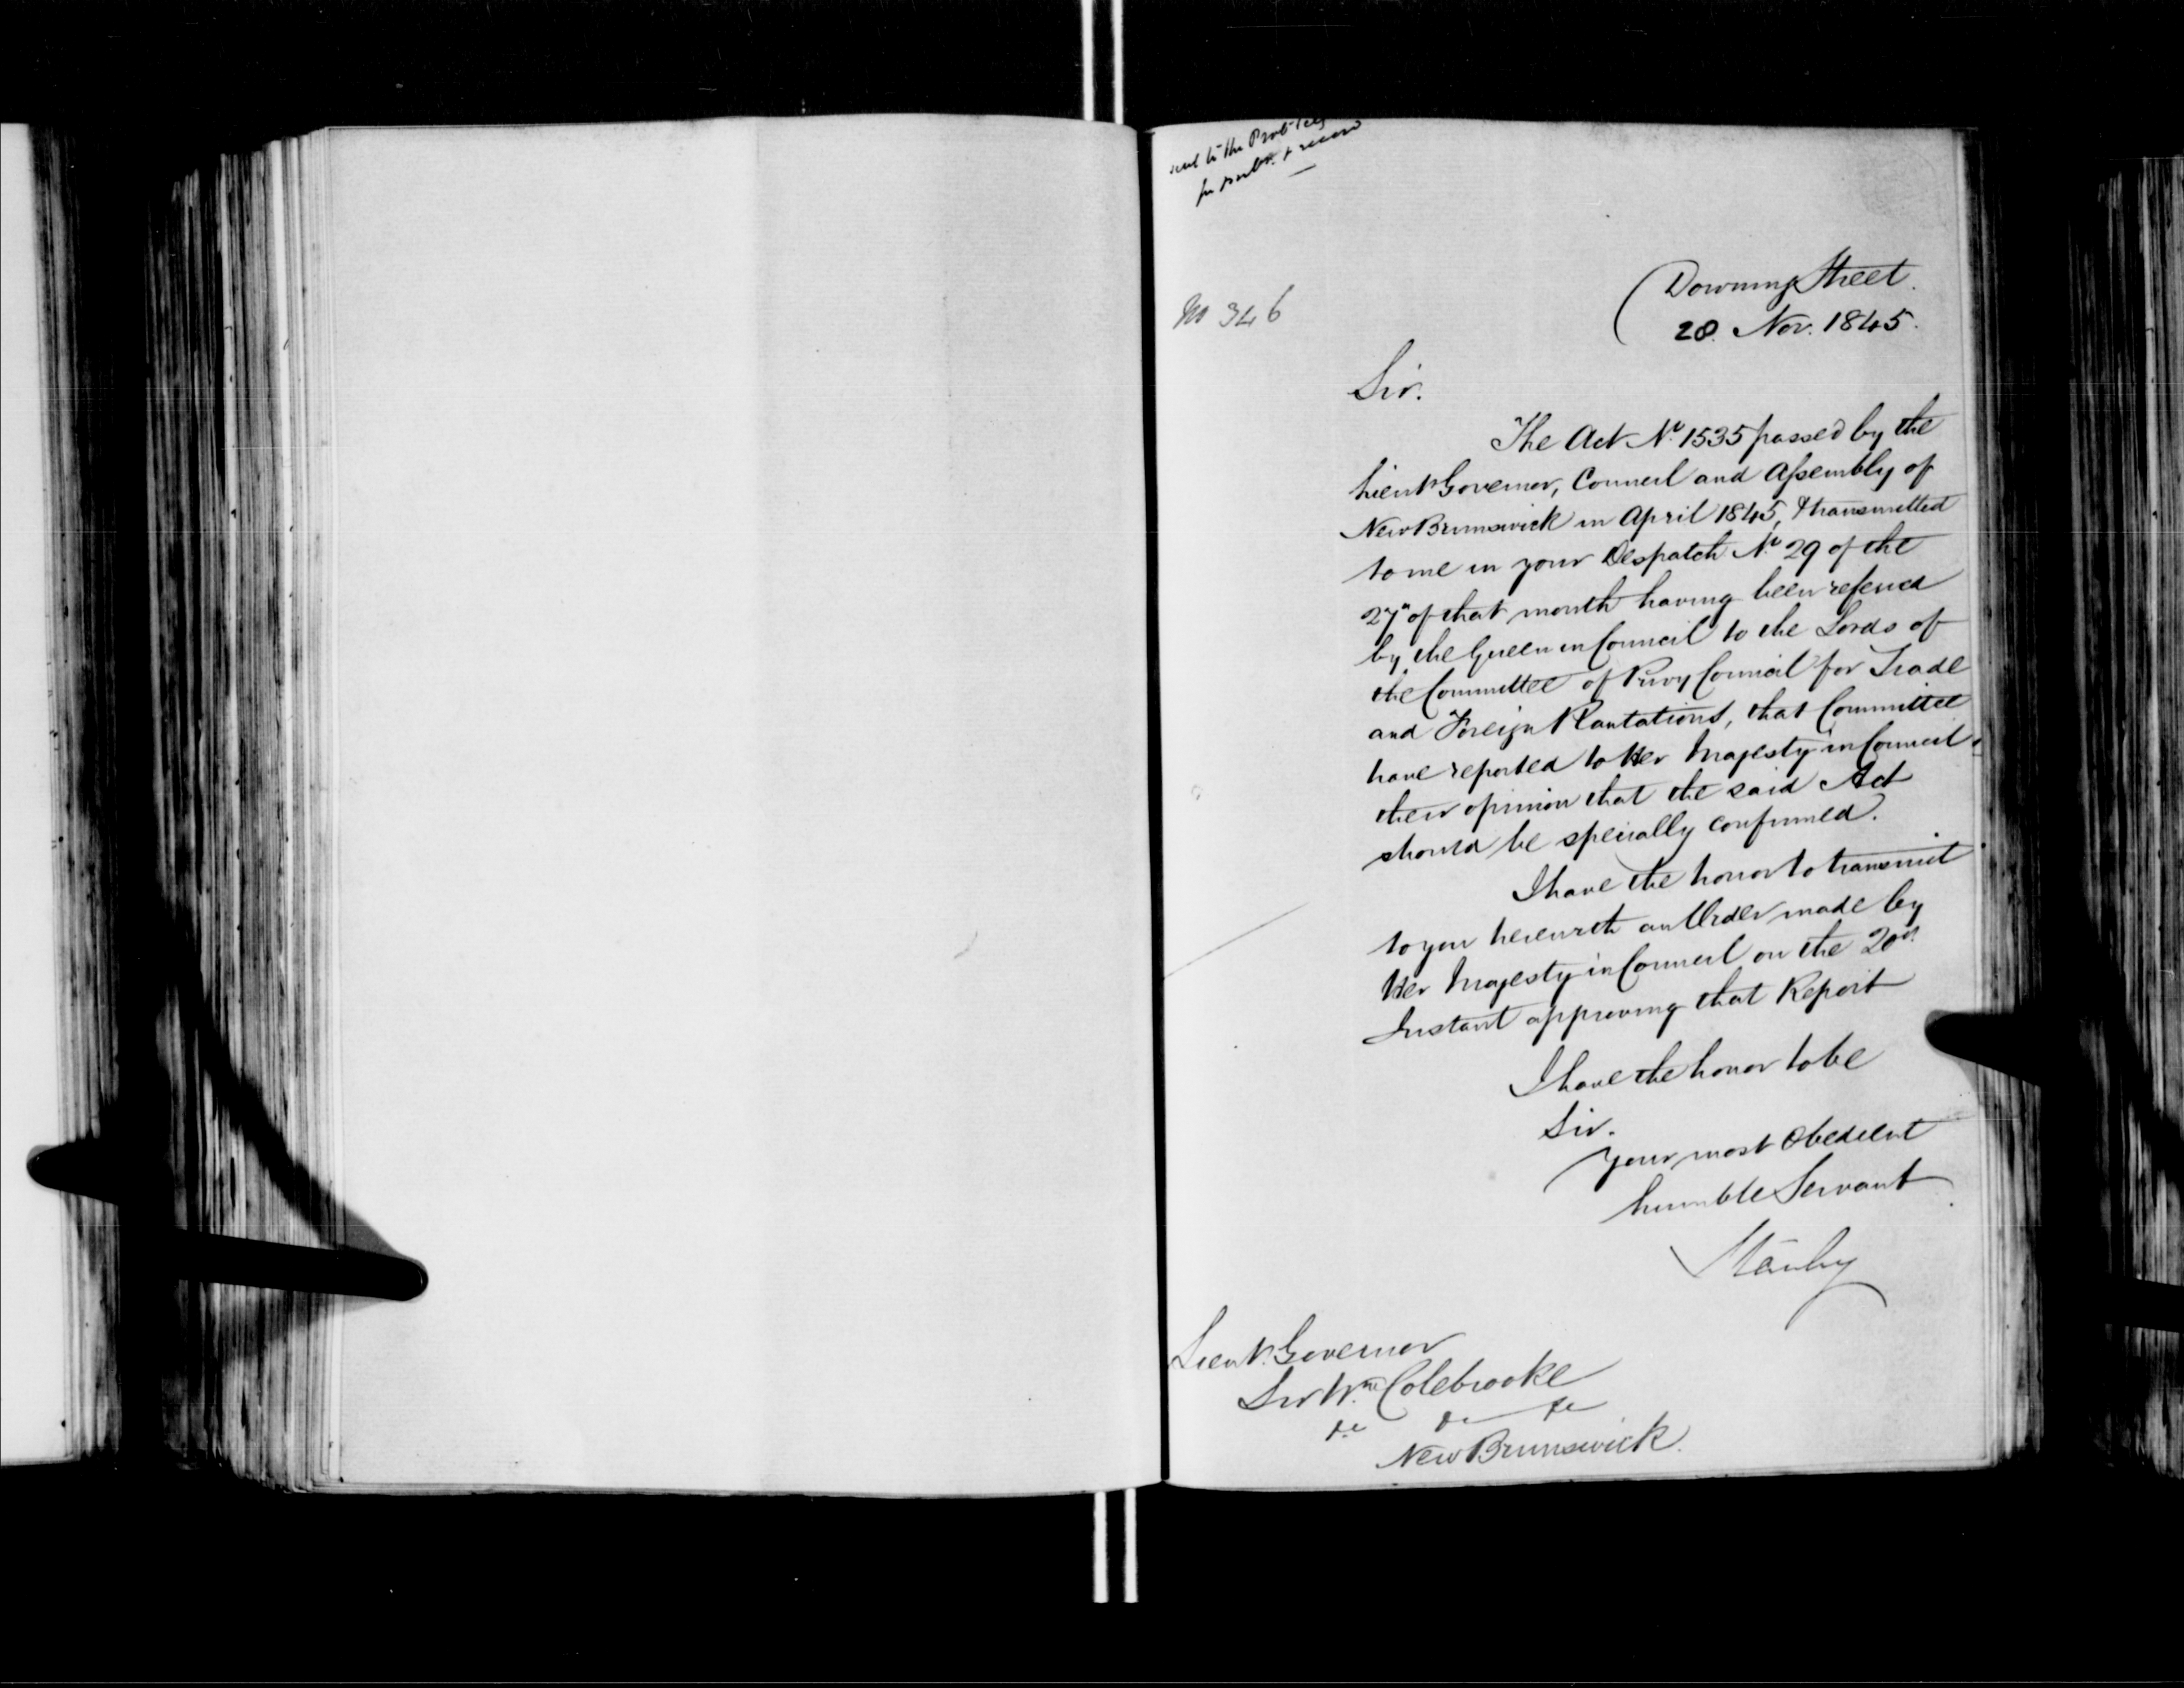 sent to the Prov.
for publn. & record
No 346
Downing Street.
28. Nov. 1845.
Sir.
The Act No. 1535 passed by the
Lieut Governor, Council and Assembly of
New Brunswick in April 1845, & transmitted
to me in your Despatch No. 29 of the
27th of that month having been referred
by the Queen in Council to the Lords of
the Committee of Privy Council for Trade
and Foreign Plantations, that Committee
have reported to Her Majesty in Council
their opinion that the said Act
should be specially confirmed.
I have the honor to transmit
to you herewith an Order made by
Her Majesty in Council on the 20th
Instant approving that Report
I have the honor to be
Sir.
Your most Obedient
humble Servant
Stanley
Lieut. Governor
Sir Wm. Colebrooke
&c &c &c
New Brunswick.